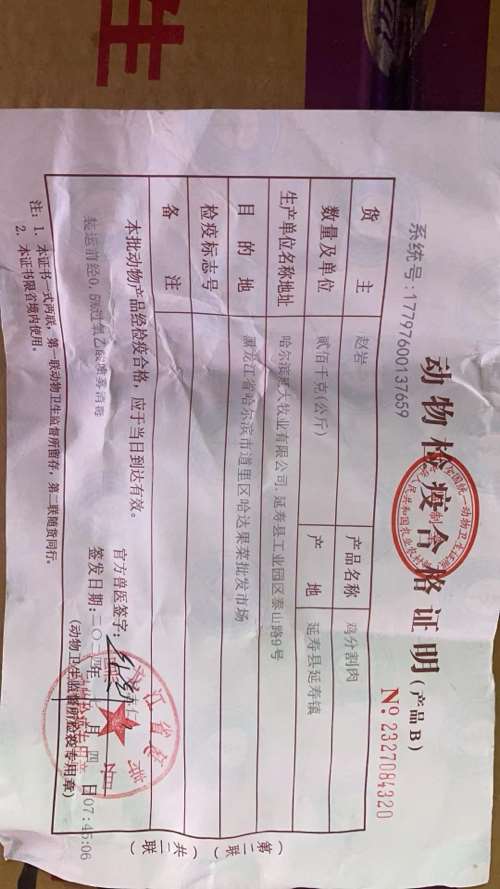 生
动物检疫合格证明(产品B)
系统号:17797600137659
№.2327084320
货 主 赵岩 产品名称 鸡分割肉
数量及单位 贰佰千克(公斤) 产 地 延寿县延寿镇
生产单位名称地址 延寿县工业园区泰山路9号
目的地 黑龙江省哈尔滨市道里区哈达果菜批发市场
检疫标志号
备 注
本批动物产品经检疫合格,应于当日到达有效。
官方兽医签字:
装运前经0.5%过氧乙酸喷雾消毒
签发日期:
07:45:06
(动物卫生监督所检疫专用章)
注:1、本证书一式两联,第一联动物卫生监督所留存,第二联随货同行。
2、本证书限省境内使用。
(第二联)
(共二联)